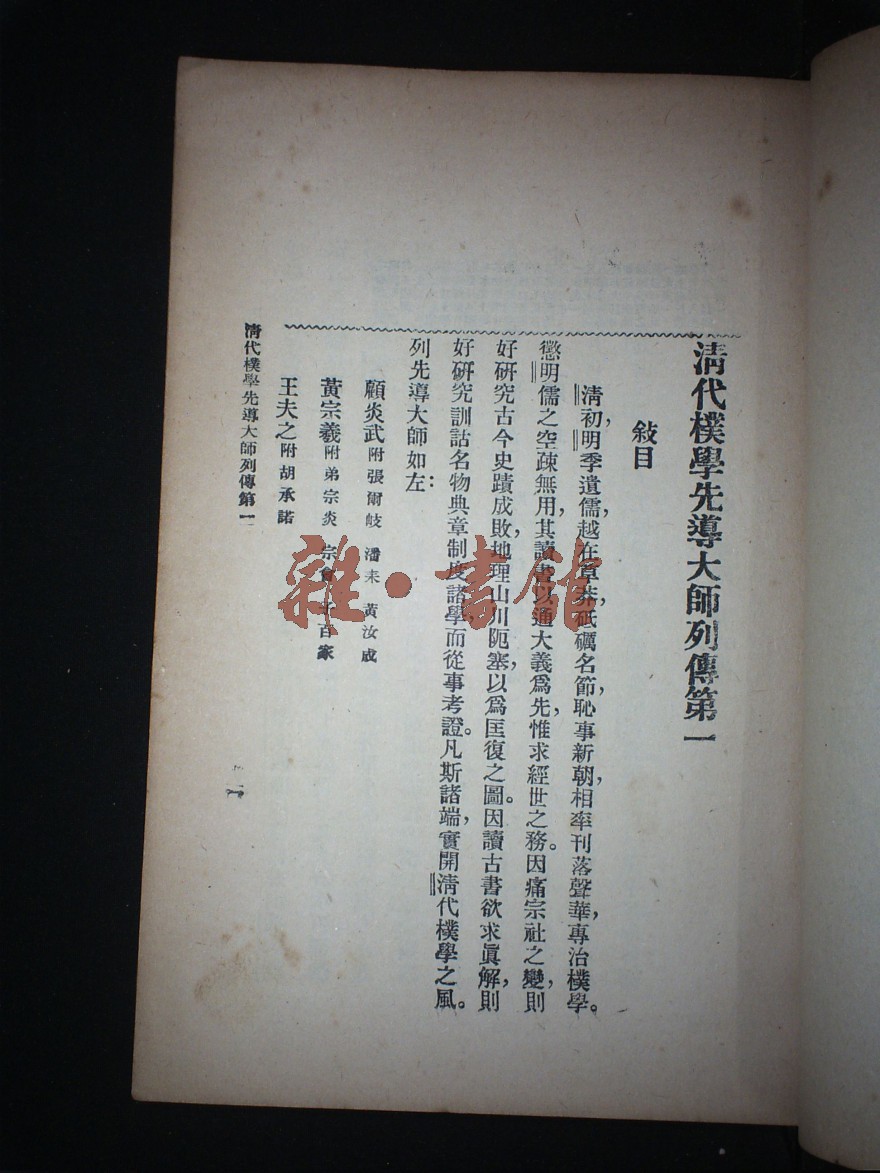 清代樸學先導大師列傳第一
敍目
清初,明季遺儒,越在草莽,砥礪名節,恥事新朝,相率刊落聲華,專治樸學。
懲明儒之空疎無用,其讀書以通大義爲先,惟求經世之務。因痛宗社之變,則
好硏究古今史蹟成敗,地理山川阨塞,以爲匡復之圖。因讀古書欲求眞解,則
好硏究訓詁名物典章制度諸學,而從事考證。凡斯諸端,實開淸代樸學之風。
列先導大師如左:
顧炎武附張爾岐 潘耒 黃汝成
黃宗羲附弟宗炎 宗會 子百家
王夫之附胡承諾
清代樸學先導大師列傳第一
一
雜·書館